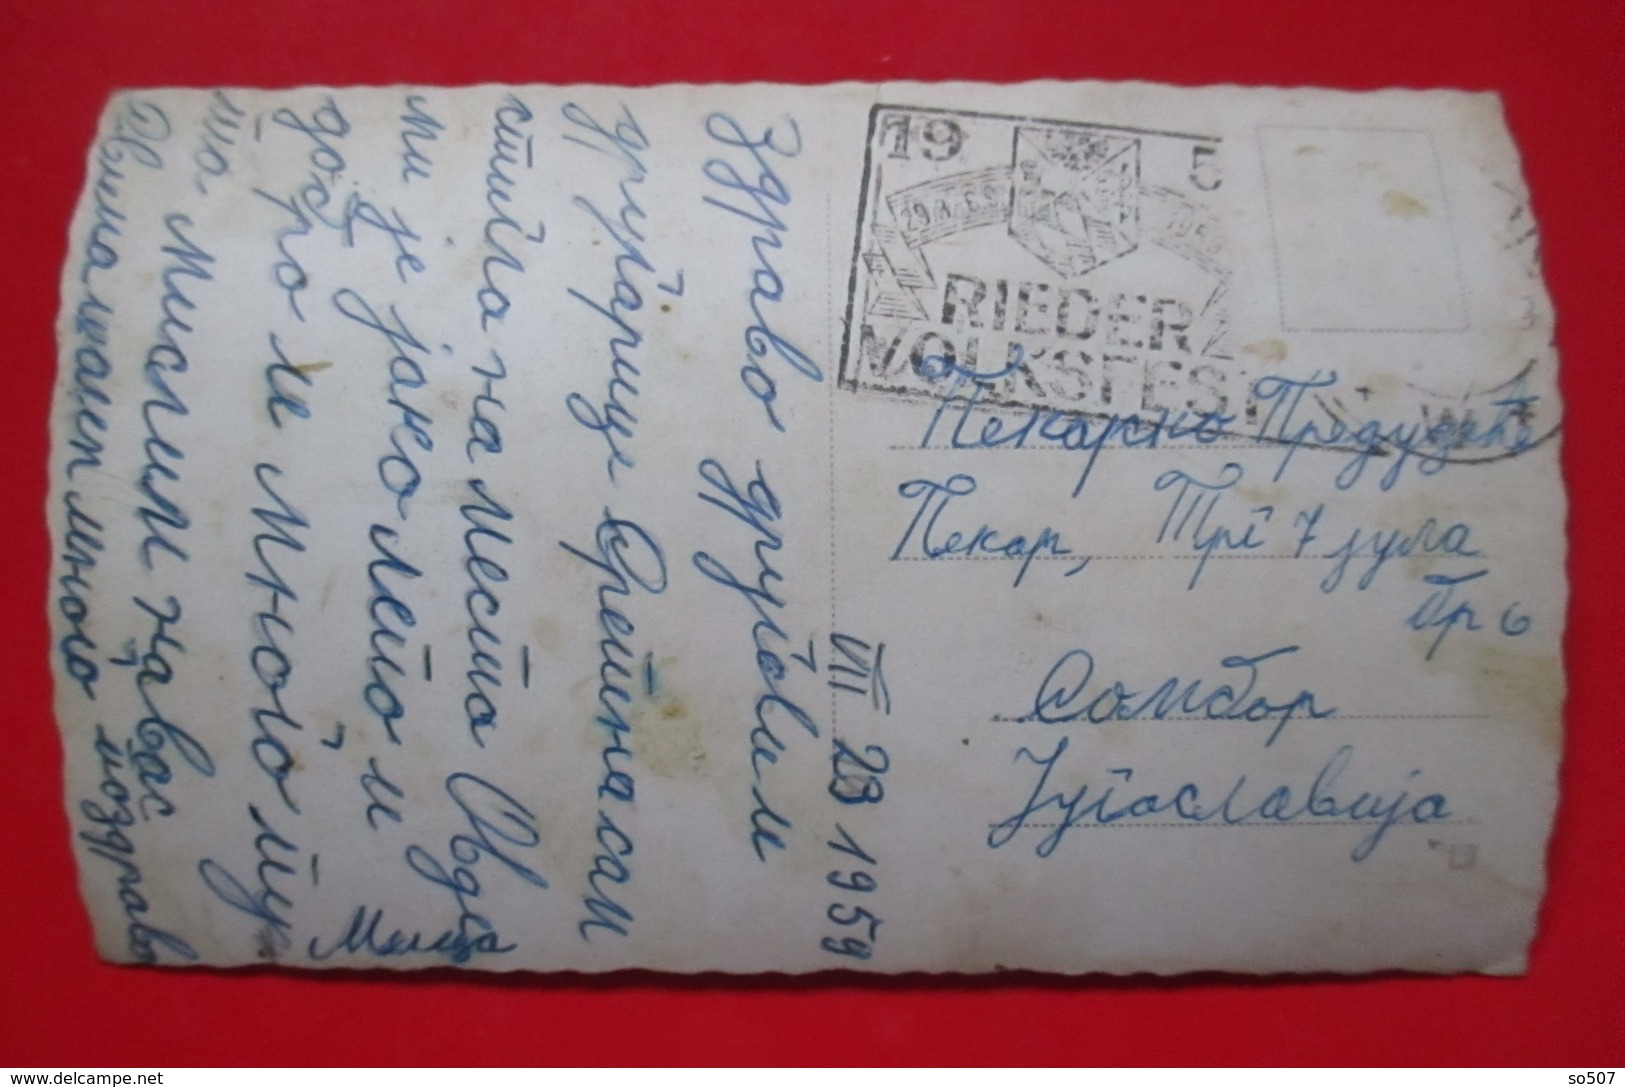 Здраво другови и
другарице Сретна сам
стигла на место Овде
ми је јако лепо и
добро и много пу
та мислим на вас
много поздрава
Мица
VII 23 1959
19 5
RIEDER
VOLKSFEST
Пекарско Предузеће
Пекар, Трг 7 јула
бр 6
Сомбор
Југославија
www.delcampe.net
so507